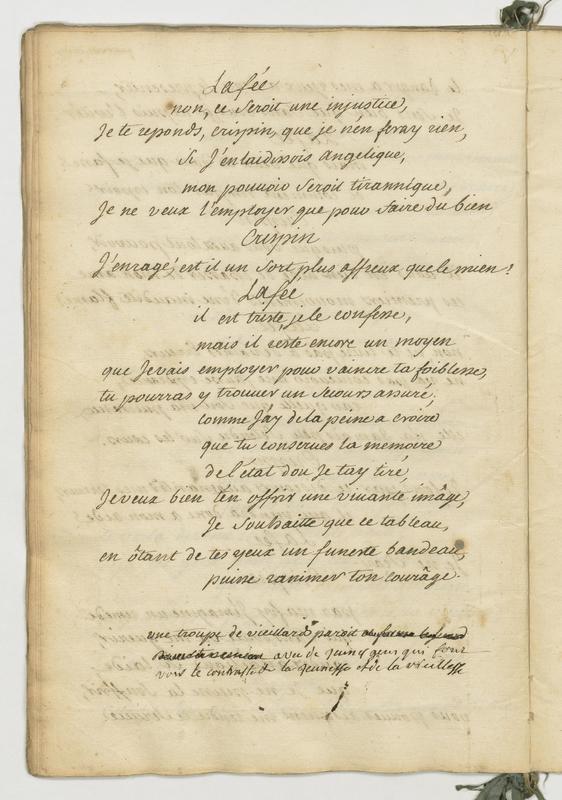 La fée
non, ce seroit une injustice,
Je te reponds, crispin, que je n'en feray rien,
Si J'enlaidissois angelique,
mon pouvoir seroit tirannique,
Je ne veux l'employer que pour faire du bien
Crispin
J'enrage, est il un sort plus affreux que le mien?
La fée
il est triste, je le confesse,
mais il reste encore un moyen
que Je vais employer pour vaincre ta foiblesse,
tu pourras y trouver un secours assuré;
comme J'ay de la peine a croire
que tu conserves la memoire
de l'état dou Je t'ay tiré,
Je veux bien t'en offrir une vivante imâge,
Je souhaitte que ce tableau,
en ôtant de tes yeux un funeste bandeau,
puisse ranimer ton courâge.
une troupe de vieillards paroit
avec de jeunes gens qui font
voir le contraste de la jeunesse et de la vieillesse